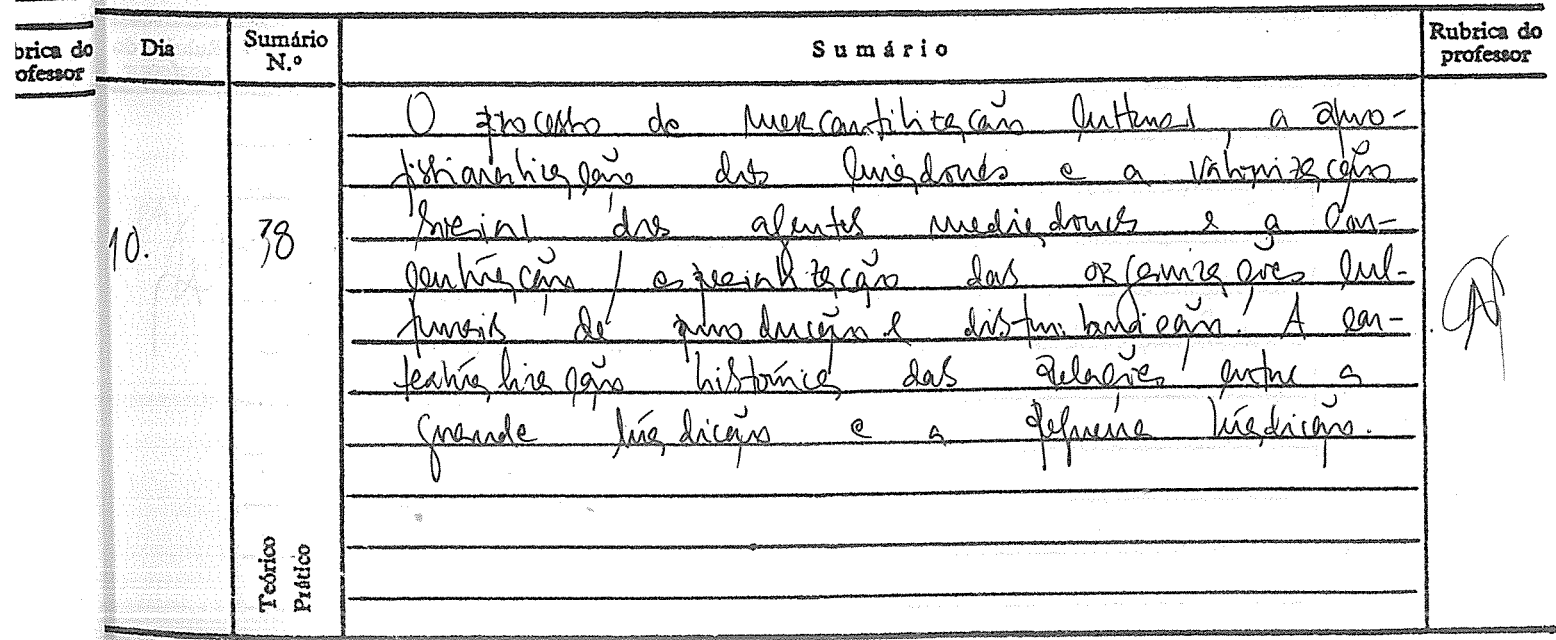 brica do
ofessor
Dia
Sumário
N.º
Sumário
Rubrica do
professor
10.
38
O processo de mercantilização cultural, a pro-
fissionalização dos criadores e a valorização
social dos agentes mediadores e a con-
centração / especialização das organizações cul-
turais de produção e distribuição. A con-
textualização histórica das relações entre a
grande tradição e a pequena tradição.
Teórico
Prático